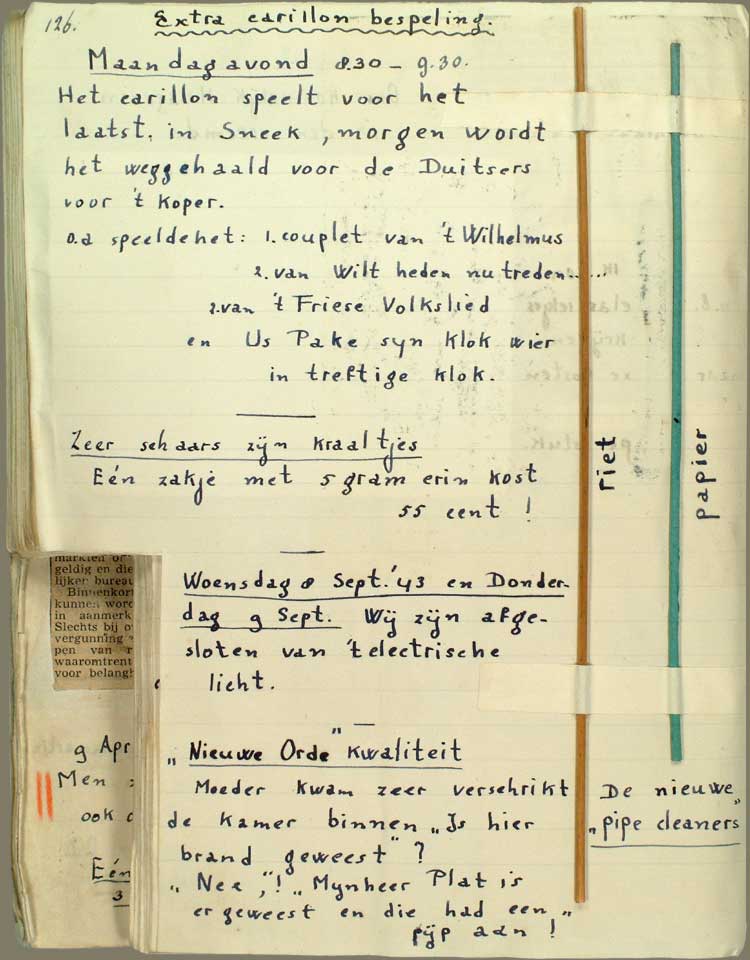 126.
Extra carillon bespeling.
Maandagavond 8.30 – 9.30.
Het carillon speelt voor het
laatst, in Sneek, morgen wordt
het weggehaald voor de Duitsers
voor 't koper.
o.a speelde het: 1. couplet van 't Wilhelmus
2. van Wilt heden nu treden.....
2. van 't Friese Volkslied
en Us Pake syn klok wier
in treftige klok.
Zeer schaars zijn kraaltjes
Eén zakje met 5 gram erin kost
55 cent !
riet
papier
Woensdag 8 Sept. '43 en Donder-
dag 9 Sept. Wij zijn afge-
sloten van 't electrische
licht.
„Nieuwe Orde" kwaliteit
Moeder kwam zeer verschrikt
de kamer binnen „Is hier
brand geweest" ?
„Nee", ! „Mynheer Plat is
er geweest en die had een „
pijp aan !
De nieuwe
„pipe cleaners"
geldig en die
lijker bureau
Binnenkort
kunnen word
in aanmerk
Slechts bij o
vergunning
pen van r
waaromtrent
voor belangh
9 Apr
Men
ook
Eén
3